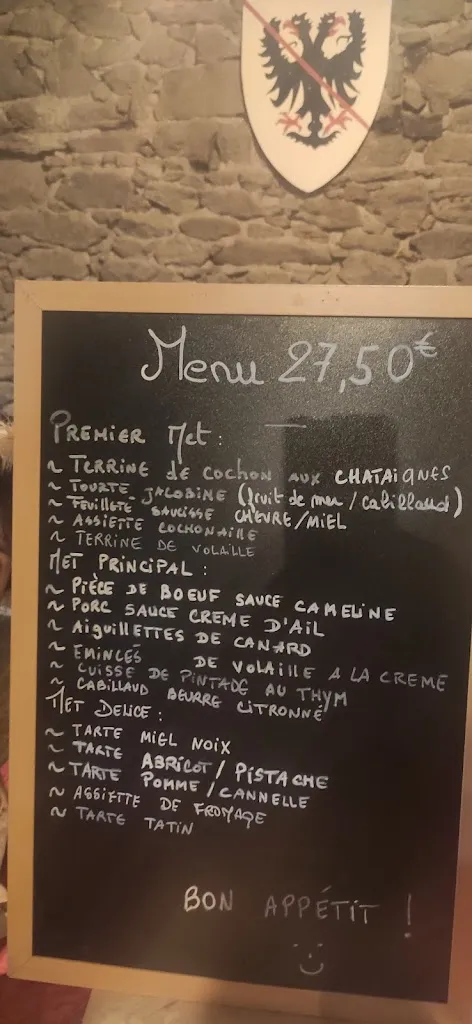 Menu 27,50€
PREMIER Met :
~ TERRINE de COCHON AUX CHATAIGNES
~ TOURTE JACOBINE (fruit de mer / cabillaud)
~ FEUILLETE SAUCISSE CHEVRE/MIEL
~ ASSIETTE COCHONAILLE
~ TERRINE DE VOLAILLE
MET PRINCIPAL :
~ PIÈCE DE BOEUF SAUCE CAMELINE
~ PORC SAUCE CREME D'AIL
~ AiguillETTES DE CANARD
~ EMINCÉS DE VOLAILLE A LA CREME
~ CUISSE DE PINTADE AU THYM
~ CABILLAUD BEURRE CITRONNÉ
MET DELICE :
~ TARTE MIEL NOIX
~ TARTE ABRICOT / PISTACHE
~ TARTE POMME / CANNELLE
~ ASSIETTE DE FROMAGE
~ TARTE TATIN
BON APPÉTIT !